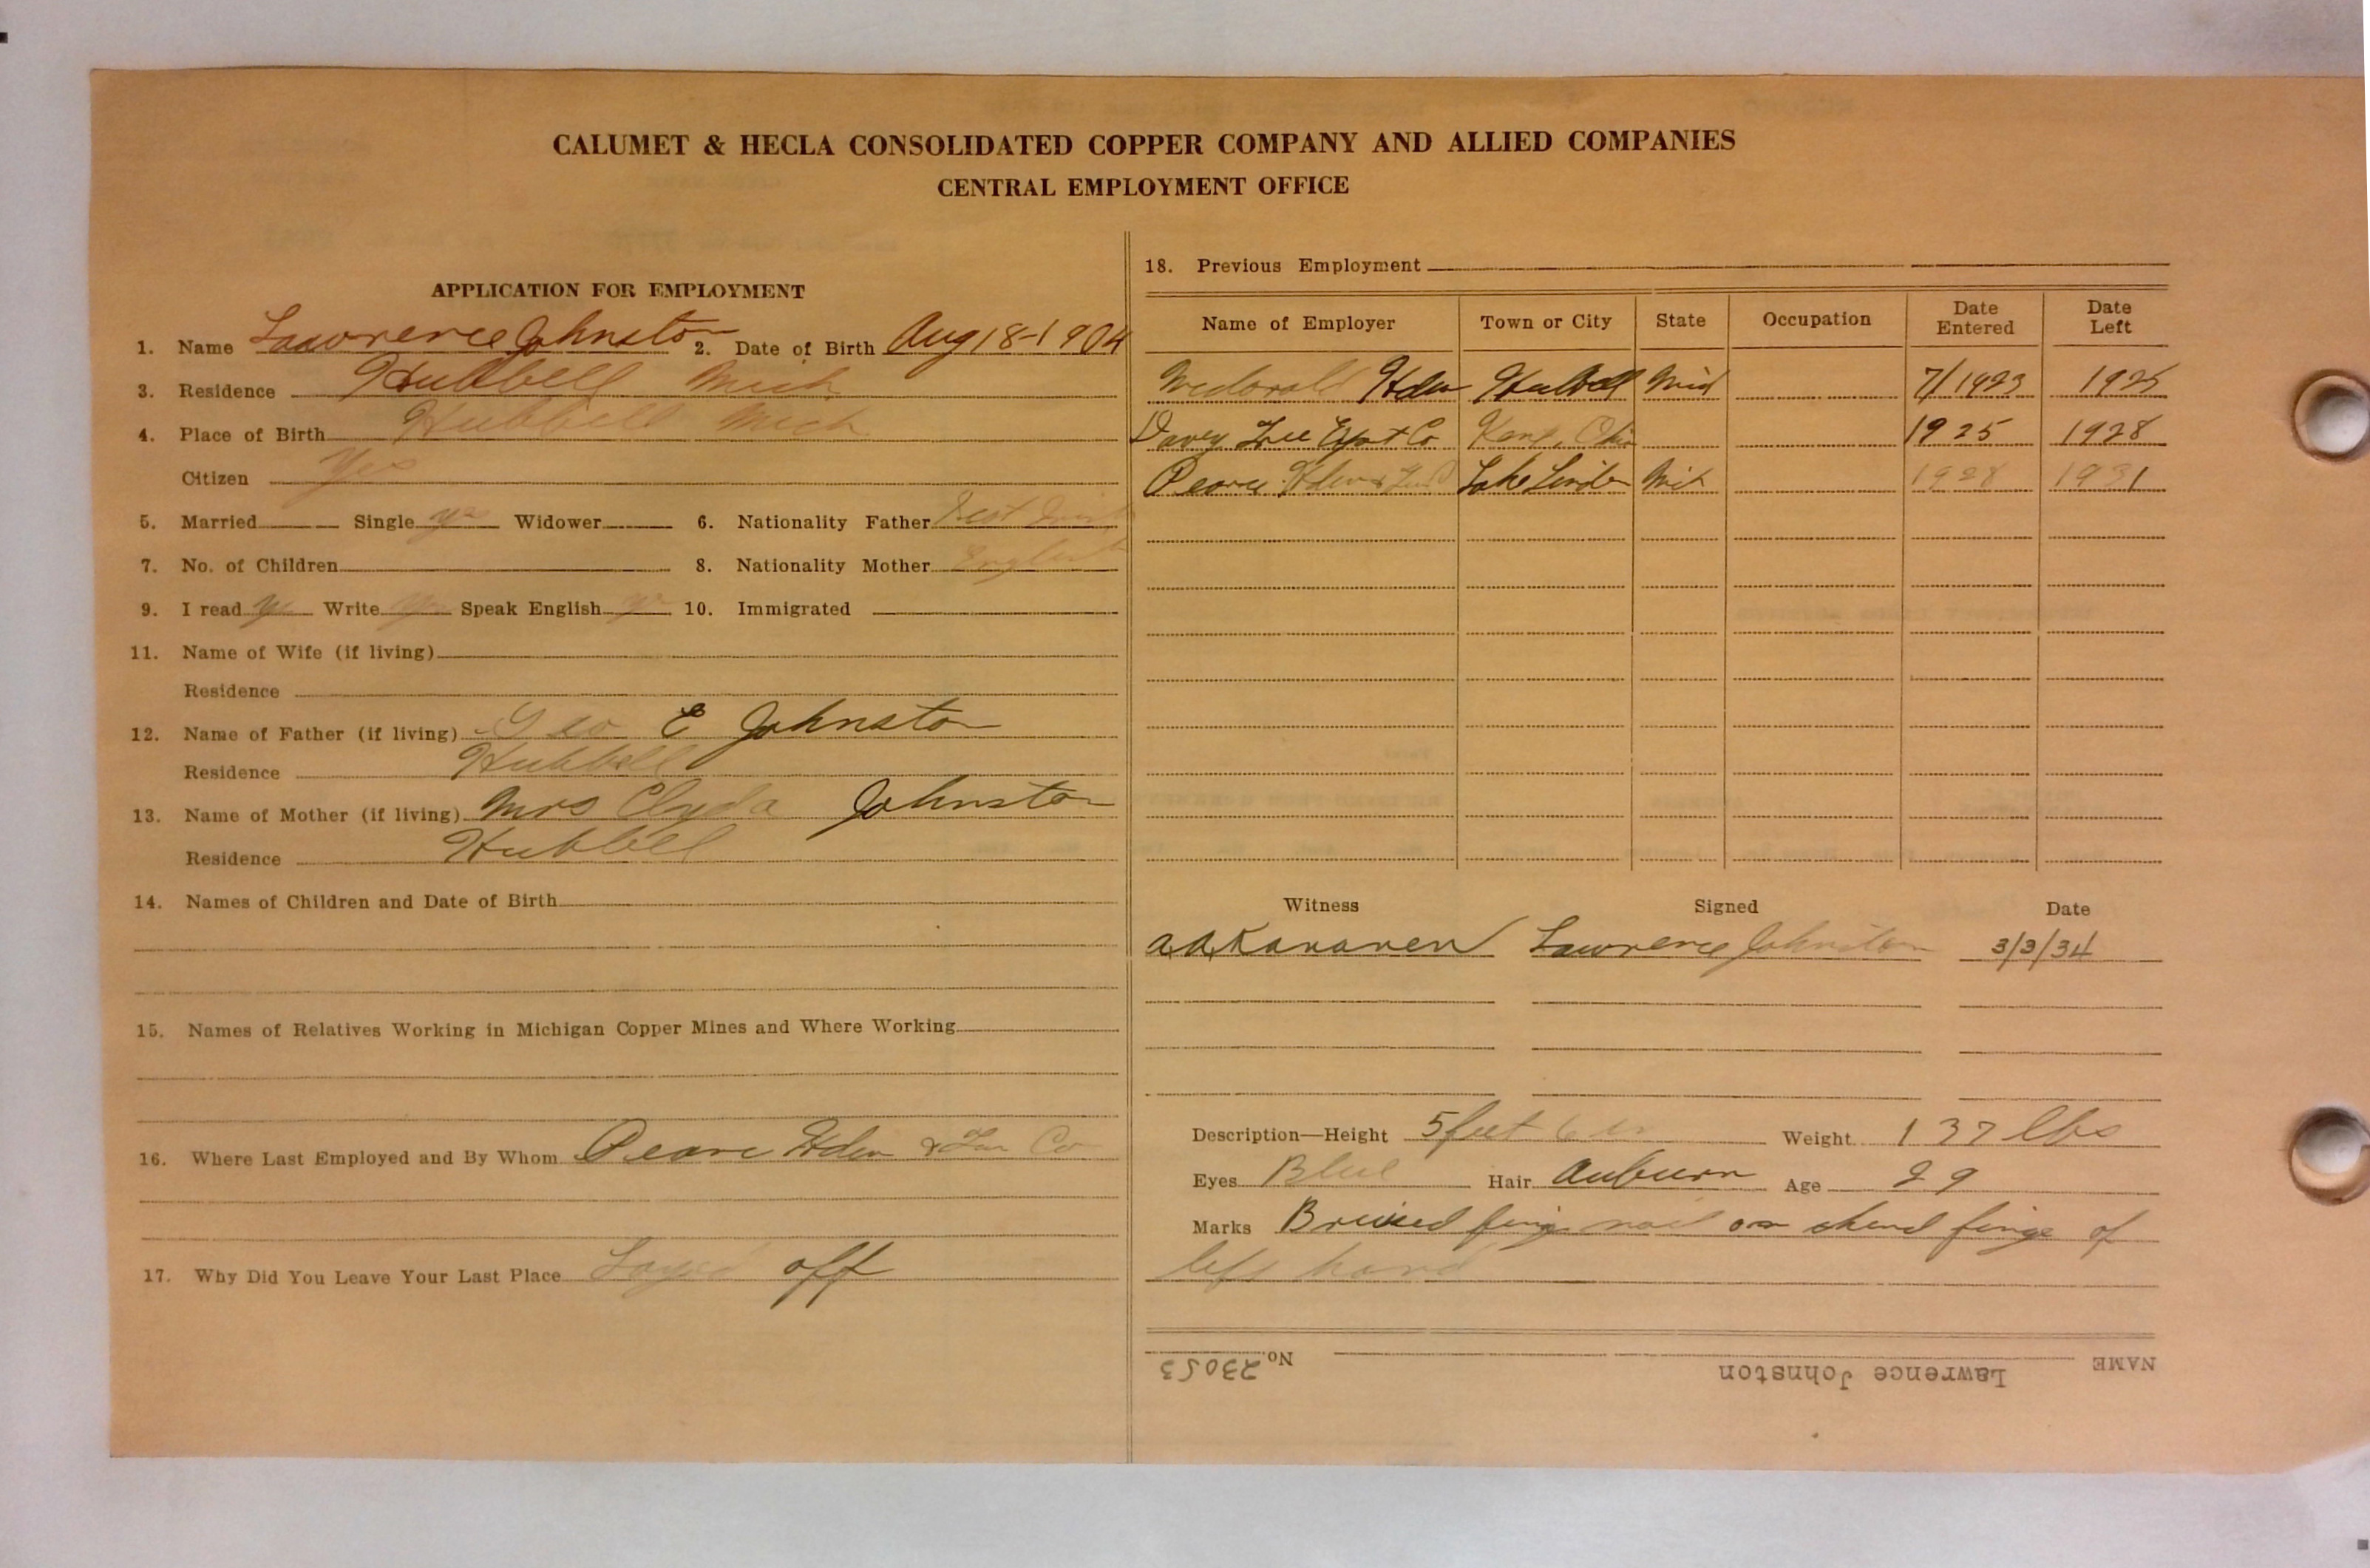 CALUMET & HECLA CONSOLIDATED COPPER COMPANY AND ALLIED COMPANIES
CENTRAL EMPLOYMENT OFFICE
APPLICATION FOR EMPLOYMENT
1. Name Lawrence Johnston 2. Date of Birth Aug 18-1904
3. Residence Hubbell Mich
4. Place of Birth Hubbell Mich
Citizen Yes
5. Married Single yes Widower 6. Nationality Father
7. No. of Children 8. Nationality Mother English
9. I read yes Write yes Speak English yes 10. Immigrated
11. Name of Wife (if living)
Residence
12. Name of Father (if living) Geo E Johnston
Residence Hubbell
13. Name of Mother (if living) Mrs Clyda Johnston
Residence Hubbell
14. Names of Children and Date of Birth
15. Names of Relatives Working in Michigan Copper Mines and Where Working
16. Where Last Employed and By Whom Pearce Hdw & Fur Co
17. Why Did You Leave Your Last Place Layed off
18. Previous Employment
Name of Employer Town or City State Occupation Date Entered Date Left
Mcdonald Hdw Hubbell Mich 7/1923 1925
Davey Tree Expt Co Kent, Ohio 1925 1928
Pearce Hdw & Fur Lake Linden Mich 1928 1931
Witness Signed Date
Lawrence Johnston 3/3/34
Description—Height 5 feet 6 in Weight 137 lbs
Eyes Blue Hair Auburn Age 29
Marks Bruised finger nail on finger of
left hand
NAME Lawrence Johnston No. 23053